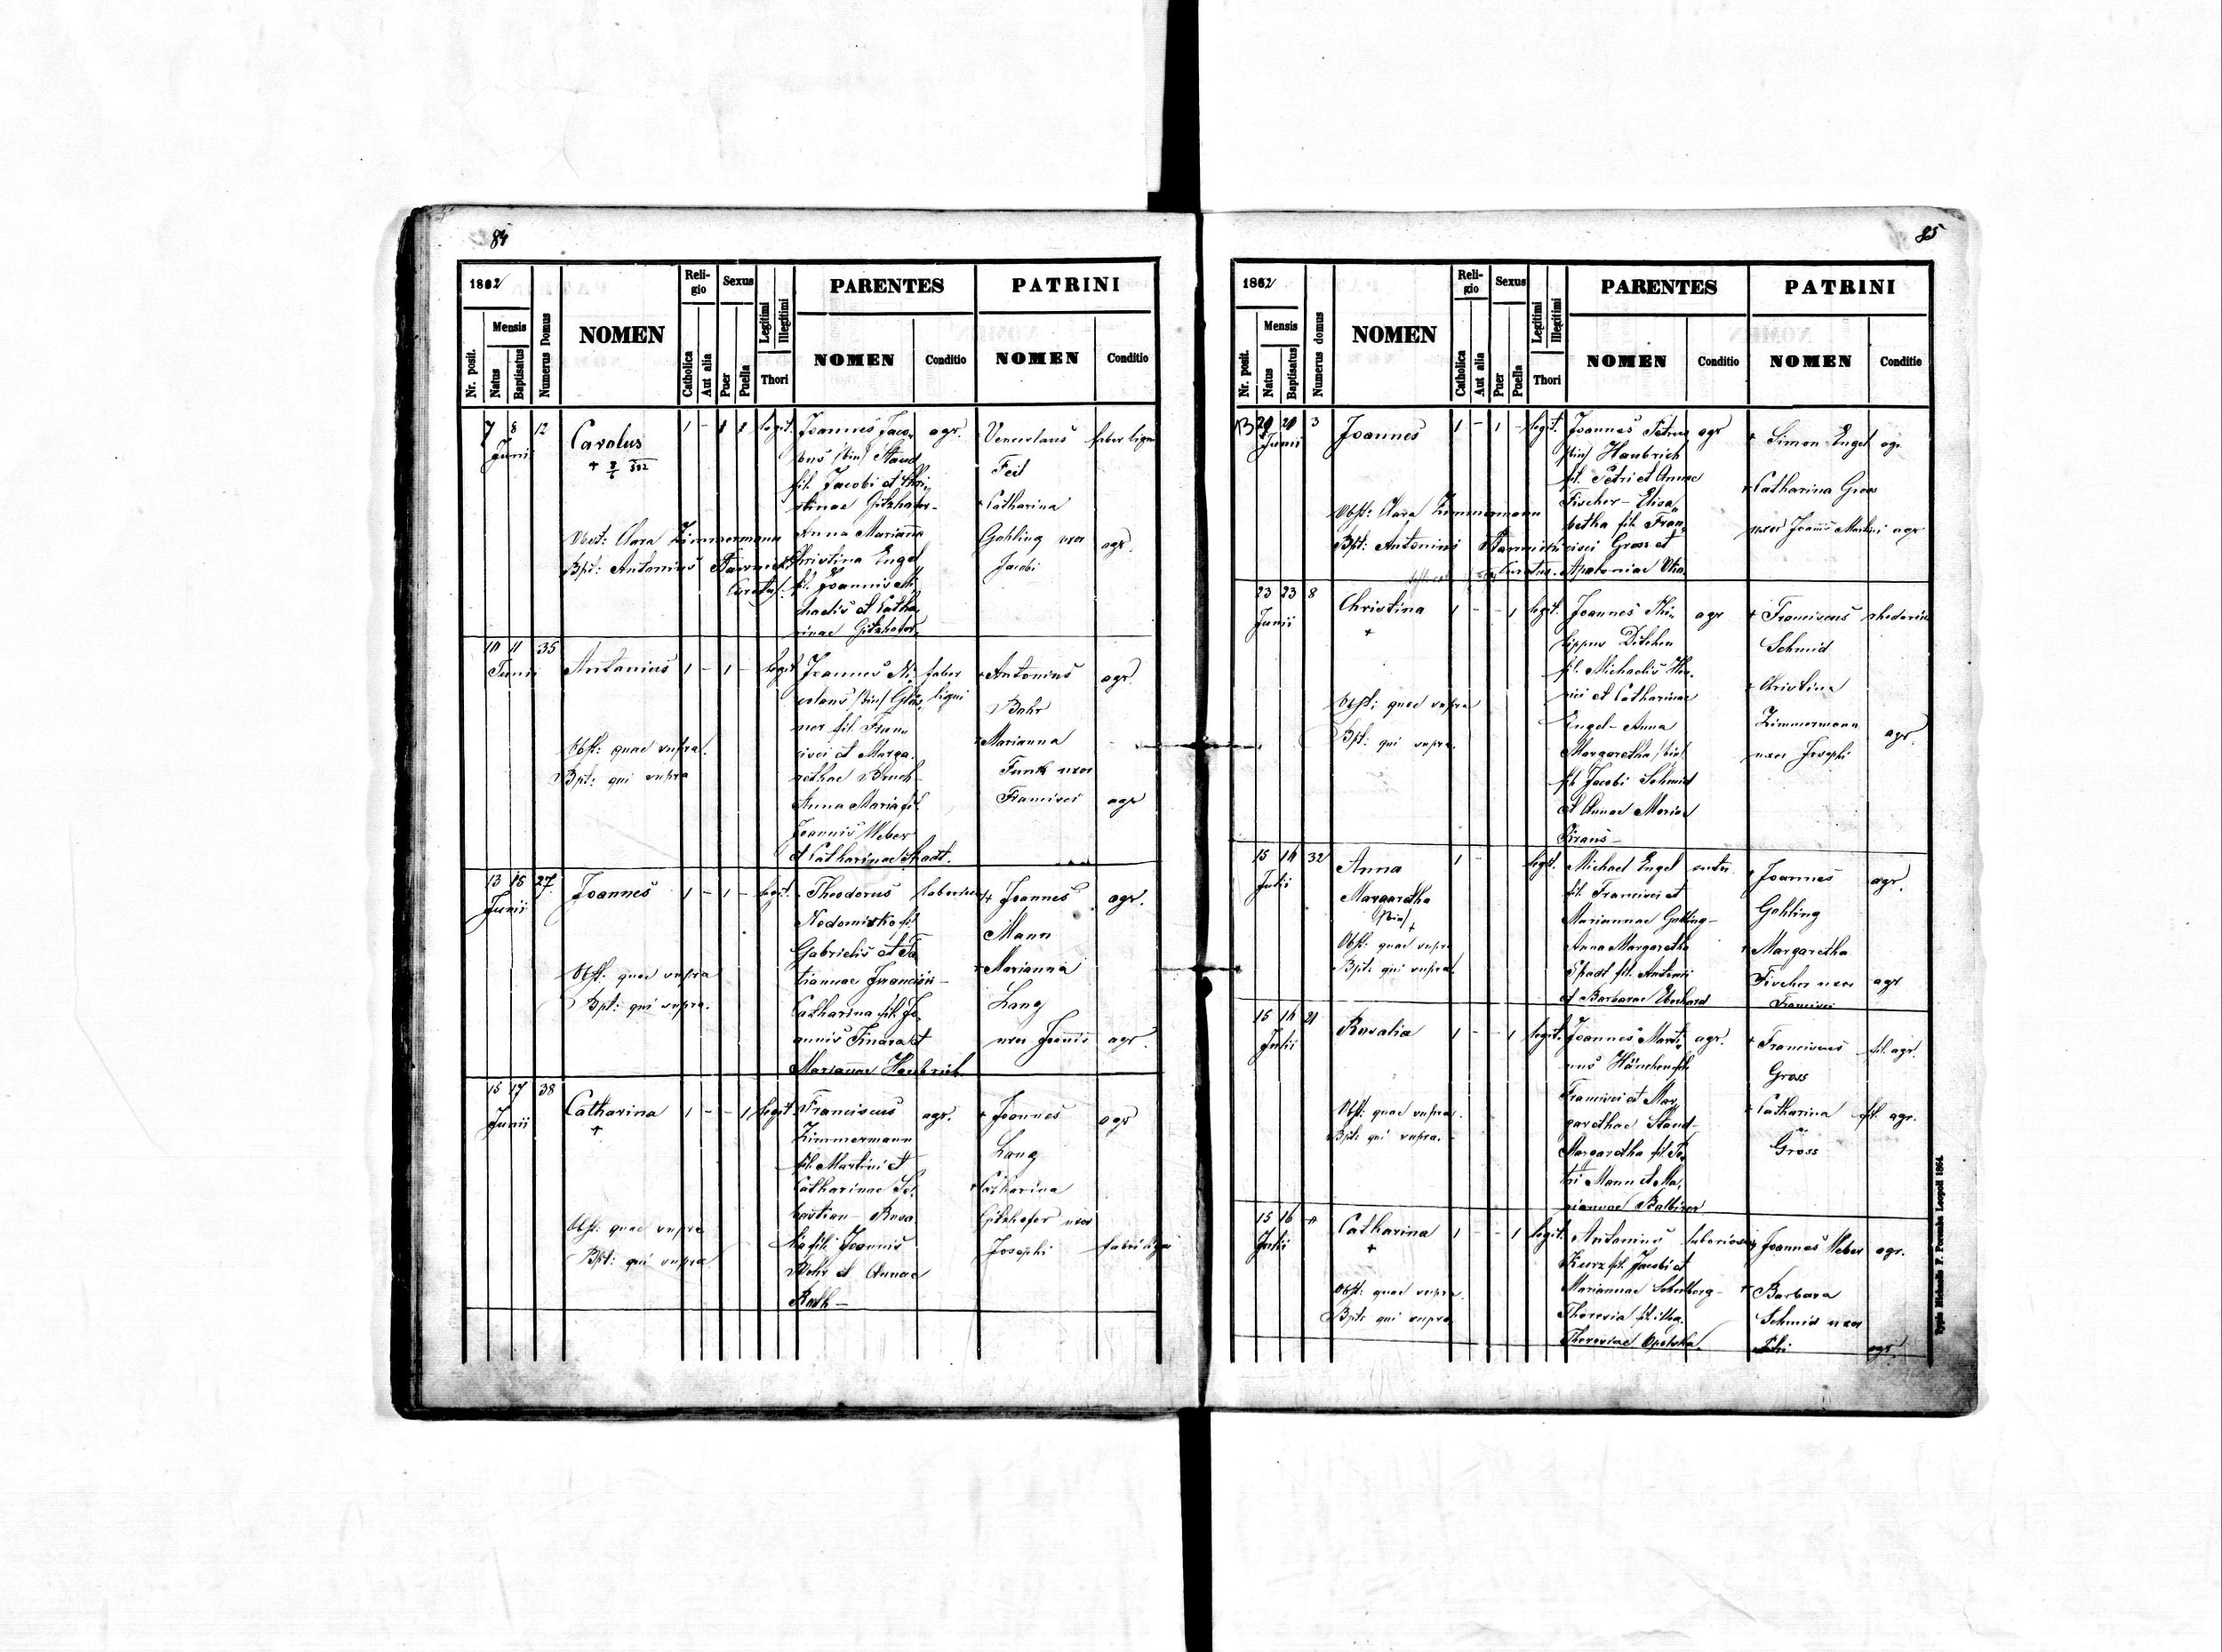 84
1862
Nr. posit.
Mensis
Natus
Baptisatus
Numerus Domus
NOMEN
Reli-
gio
Catholica
Aut alia
Sexus
Puer
Puella
Legitimi
Illegitimi
Thori
PARENTES
NOMEN
Conditio
PATRINI
NOMEN
Conditio
7 8 12
Junii
Carolus
1 - 1
legit.
Joannes Jaco-
bus (bin) Staud
fil. Jacobi et Chri-
stinae Gitzhofer -
Anna Marianna
Christina Engel
fil. Joannis Mi-
chaelis et Catha-
rinae Gitzhofer
agr.
Venceslaus
Feil
+ Catharina
Gohling uxor
Jacobi
faber lign
agr.
Obst: Clara Zimmermann
Bpt: Antonius
10 11 35
Junii
Antonius
1 - 1 -
legit
Joannes Ni-
colaus (bin)
ner fil. Fran-
cisci et Marga-
rethae
Anna Maria fil.
Joannis Weber
et Catharinae
faber
ligni
+ Antonius
Bohr
+ Marianna
Funk uxor
Francisci
agr.
agr
Obst: quae supra.
Bpt: qui supra
13 15 27
Junii
Joannes
1 - 1 -
legit.
Theodorus
fil.
Gabrielis et Ta-
tiannae
Catharina fil. Jo-
annis et
Mariannae Haubrich
+ Joannes
Mann
+ Marianna
Lang
uxor Joannis
agr.
agr.
Obst: quae supra
Bpt: qui supra.
15 17 38
Junii
Catharina
+
1 - - 1
legit
Franciscus
Zimmermann
fil. Martini et
Catharinae Se-
bastian - Rosa-
lia fil. Joannis
Bohr et Annae
Roth -
agr.
+ Joannes
Lang
+ Catharina
Gitzhofer uxor
Josephi
agr
fabri ligni
Obst: quae supra
Bpt: qui supra
85
1862
Nr. posit.
Mensis
Natus
Baptisatus
Numerus domus
NOMEN
Reli-
gio
Catholica
Aut alia
Sexus
Puer
Puella
Legitimi
Illegitimi
Thori
PARENTES
NOMEN
Conditio
PATRINI
NOMEN
Conditio
20 3
Junii
Joannes
1 - 1 -
legit.
Joannes Petrus
(bin) Haubrich
fil. Petri et Annae
Fischer - Elisa-
betha fil. Fran-
cisci Gross et
Apoloniae
agr
+ Simon Engel
+ Catharina Gross
uxor Joannis Martini
agr
agr
Obst: Clara Zimmermann
Bpt: Antonius
Curatus.
23 23 8
Junii
Christina
+
1 - - 1
legit.
Joannes Phi-
lippus
fil. Michaelis Hen-
rici et Catharinae
Engel - Anna
Margaretha (bin)
fil. Jacobi Schmid
et Annae Mariae
Kraus -
agr
+ Franciscus
Schmid
+ Christina
Zimmermann
uxor Josephi
agr.
Obst: quae supra
Bpt: qui supra.
15 16 32
Julii
Anna
Margaretha
(bin)
+
1 -
legit.
Michael Engel
fil. Francisci et
Mariannae Gohling -
Anna Margaretha
fil. Antonii
et Barbarae Eberhard
+ Joannes
Gohling
+ Margaretha
Fischer uxor
Francisci
agr.
agr
Obst: quae supra
Bpt: qui supra
15 16 21
Julii
Rosalia
1 - - 1
legit.
Joannes Marti-
nus Hänchen fil.
Francisci et Mar-
garethae Staud -
Margaretha fil. Pe-
tri Mann et Ma-
riannae
agr.
+ Franciscus
Gross
+ Catharina
Gross
fil. agr.
fil. agr.
Obst: quae supra.
Bpt: qui supra.
15 16
Julii
Catharina
+
1 - - 1
legit.
Antonius
Kurz fil. Jacobi et
Mariannae
Theresia fil. illeg.
Theresiae
+ Joannes Weber
+ Barbara
Schmid uxor
Petri
agr.
agr.
Obst: quae supra.
Bpt: qui supra
Typis Michaelis F. Poremba Leopoli 1864.